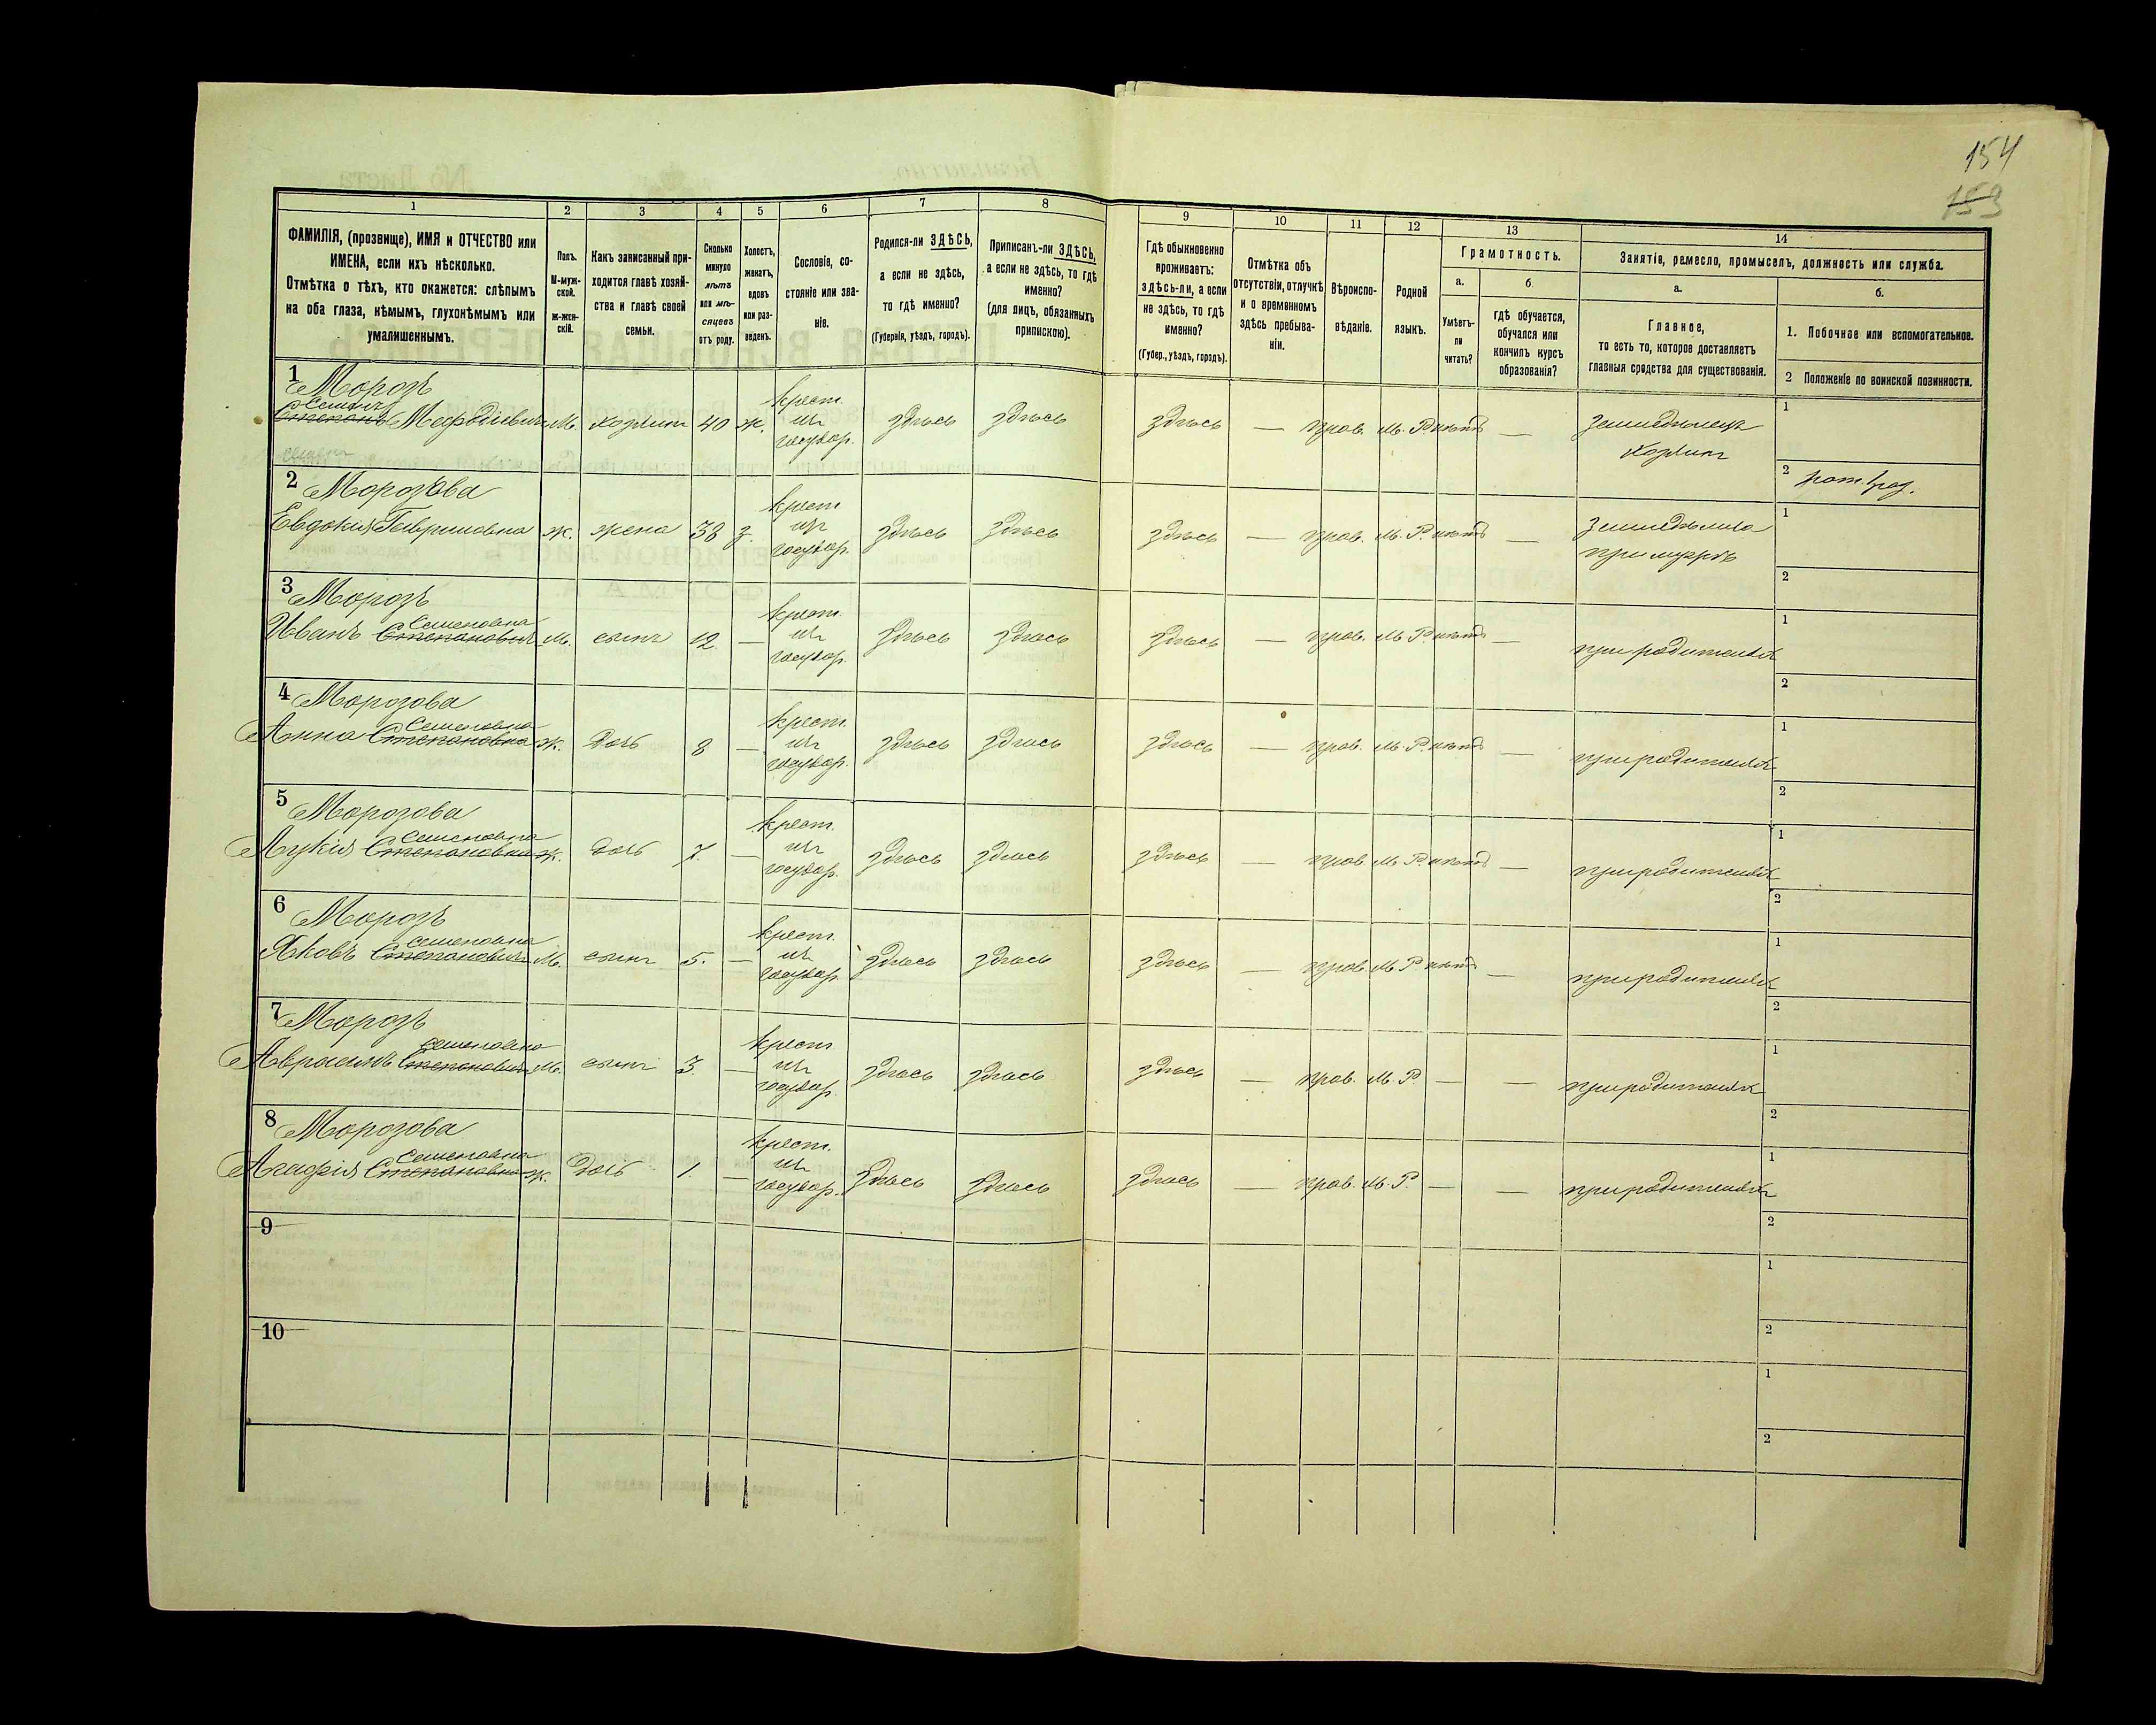 154
153
1
2
3
4
5
6
7
8
9
10
11
12
13
14
ФАМИЛІЯ, (прозвище), ИМЯ и ОТЧЕСТВО или
ИМЕНА, если ихъ нѣсколько.
Отмѣтка о тѣхъ, кто окажется: слѣпымъ
на оба глаза, нѣмымъ, глухонѣмымъ или
умалишеннымъ.
Полъ.
М-муж-
ской.
ж-жен-
скій.
Какъ записанный при-
ходится главѣ хозяй-
ства и главѣ своей
семьи.
Сколько
минуло
лѣтъ
или мѣ-
сяцевъ
отъ роду.
Холостъ,
женатъ,
вдовъ
или раз-
веденъ.
Сословіе, со-
стояніе или зва-
ніе.
Родился-ли ЗДѢСЬ,
а если не здѣсь,
то гдѣ именно?
(Губернія, уѣздъ, городъ).
Приписанъ-ли ЗДѢСЬ,
а если не здѣсь, то гдѣ
именно?
(для лицъ, обязанныхъ
припискою).
Гдѣ обыкновенно
проживаетъ:
здѣсь-ли, а если
не здѣсь, то гдѣ
именно?
(Губер., уѣздъ, городъ).
Отмѣтка объ
отсутствіи, отлучкѣ
и о временномъ
здѣсь пребыва-
ніи.
Вѣроиспо-
вѣданіе.
Родной
языкъ.
Грамотность.
а.
Умѣетъ-
ли
читать?
б.
гдѣ обучается,
обучался или
кончилъ курсъ
образованія?
Занятіе, ремесло, промыселъ, должность или служба.
а.
Главное,
то есть то, которое доставляетъ
главныя средства для существованія.
б.
1. Побочное или вспомогательное.
2 Положеніе по воинской повинности.
1 Морозъ
Семенъ
Степанъ Мефодіевичъ М. хозяинъ 40 ж. крест. изъ государ. здѣсь здѣсь здѣсь — прав. М.Р. нѣтъ — земледѣлецъ хозяинъ
семенъ
1
2
2 Морозова
Евдокия Гавриловна ж. жена 38 з. крест. изъ государ. здѣсь здѣсь здѣсь — прав. М.Р. нѣтъ — земледѣліе при мужѣ
1
2
3 Морозъ
Семеновна
Иванъ Степановичъ М. сынъ 12 — крест. изъ государ. здѣсь здѣсь здѣсь — прав. М.Р. нѣтъ — при родителяхъ
1
2
4 Морозова
Семеновна
Анна Степановна ж. дочь 8 — крест. изъ государ. здѣсь здѣсь здѣсь — прав. М.Р. нѣтъ — при родителяхъ
1
2
5 Морозова
Семеновна
Лукія Степановна ж. дочь 7. — крест. изъ государ. здѣсь здѣсь здѣсь — прав. М.Р. нѣтъ — при родителяхъ
1
2
6 Морозъ
Семеновна
Яковъ Степановичъ М. сынъ 5. — крест. изъ государ. здѣсь здѣсь здѣсь — прав. М.Р. нѣтъ — при родителяхъ
1
2
7 Морозъ
Семеновна
Авраамъ Степановичъ М. сынъ 3. — крест. изъ государ. здѣсь здѣсь здѣсь — прав. М.Р. — — при родителяхъ
1
2
8 Морозова
Семеновна
Агафія Степановна ж. дочь 1. — крест. изъ государ. здѣсь здѣсь здѣсь — прав. М.Р. — — при родителяхъ
1
2
9
1
2
10
1
2